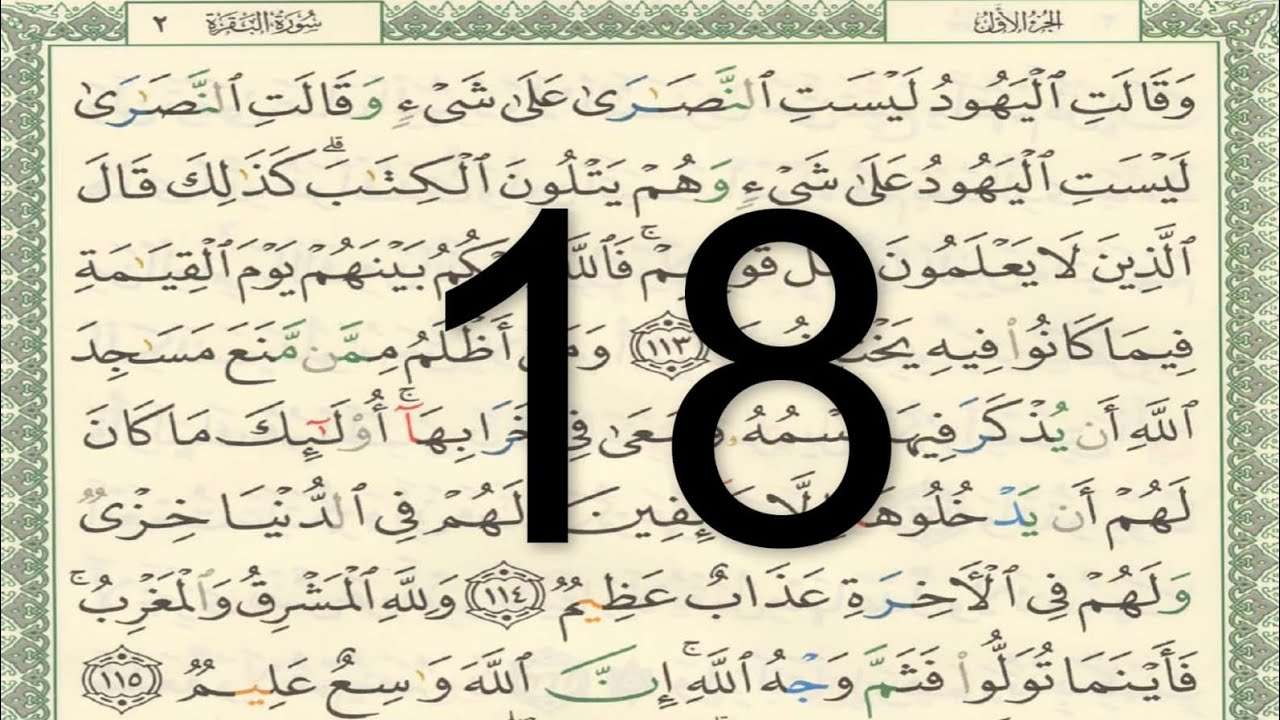 الجزء الأول
سورة البقرة ٢
وَقَالَتِ ٱلْيَهُودُ لَيْسَتِ ٱلنَّصَـٰرَىٰ عَلَىٰ شَىْءٍ وَقَالَتِ ٱلنَّصَـٰرَىٰ
لَيْسَتِ ٱلْيَهُودُ عَلَىٰ شَىْءٍ وَهُمْ يَتْلُونَ ٱلْكِتَـٰبَ ۗ كَذَٰلِكَ قَالَ
ٱلَّذِينَ لَا يَعْلَمُونَ فَٱللَّهُ بَيْنَهُمْ يَوْمَ ٱلْقِيَـٰمَةِ
فِيمَا كَانُوا۟ فِيهِ ١١٣ أَظْلَمُ مِمَّن مَّنَعَ مَسَـٰجِدَ
ٱللَّهِ أَن يُذْكَرَ فِيهَا خَرَابِهَآ ۚ أُو۟لَـٰٓئِكَ مَا كَانَ
لَهُمْ أَن يَدْخُلُوهَآ لَهُمْ فِى ٱلدُّنْيَا خِزْىٌ
وَلَهُمْ فِى ٱلْـَٔاخِرَةِ عَذَابٌ عَظِيمٌ ١١٤ وَلِلَّهِ ٱلْمَشْرِقُ وَٱلْمَغْرِبُ ۚ
فَأَيْنَمَا تُوَلُّوا۟ فَثَمَّ وَجْهُ ٱللَّهِ ۚ إِنَّ ٱللَّهَ وَٰسِعٌ عَلِيمٌ ١١٥
18